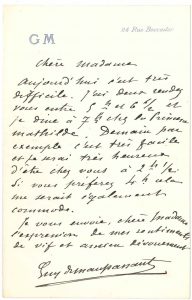 24 Rue Boccador
GM
Chère Madame
Aujourd'hui c'est très
difficile. J'ai deux rendez
vous entre 5 h et 6 h et
je dine à 7 h chez la princesse
Mathilde. Demain par
exemple c'est très facile
et je serai très heureux
d'être chez vous à 2 h 1/2
Si vous préférez 4 h cela
me serait également
commode.
Je vous envoie, chère Madame
l'expression de mes sentiments
de vif et ancien dévouement
Guy de Maupassant